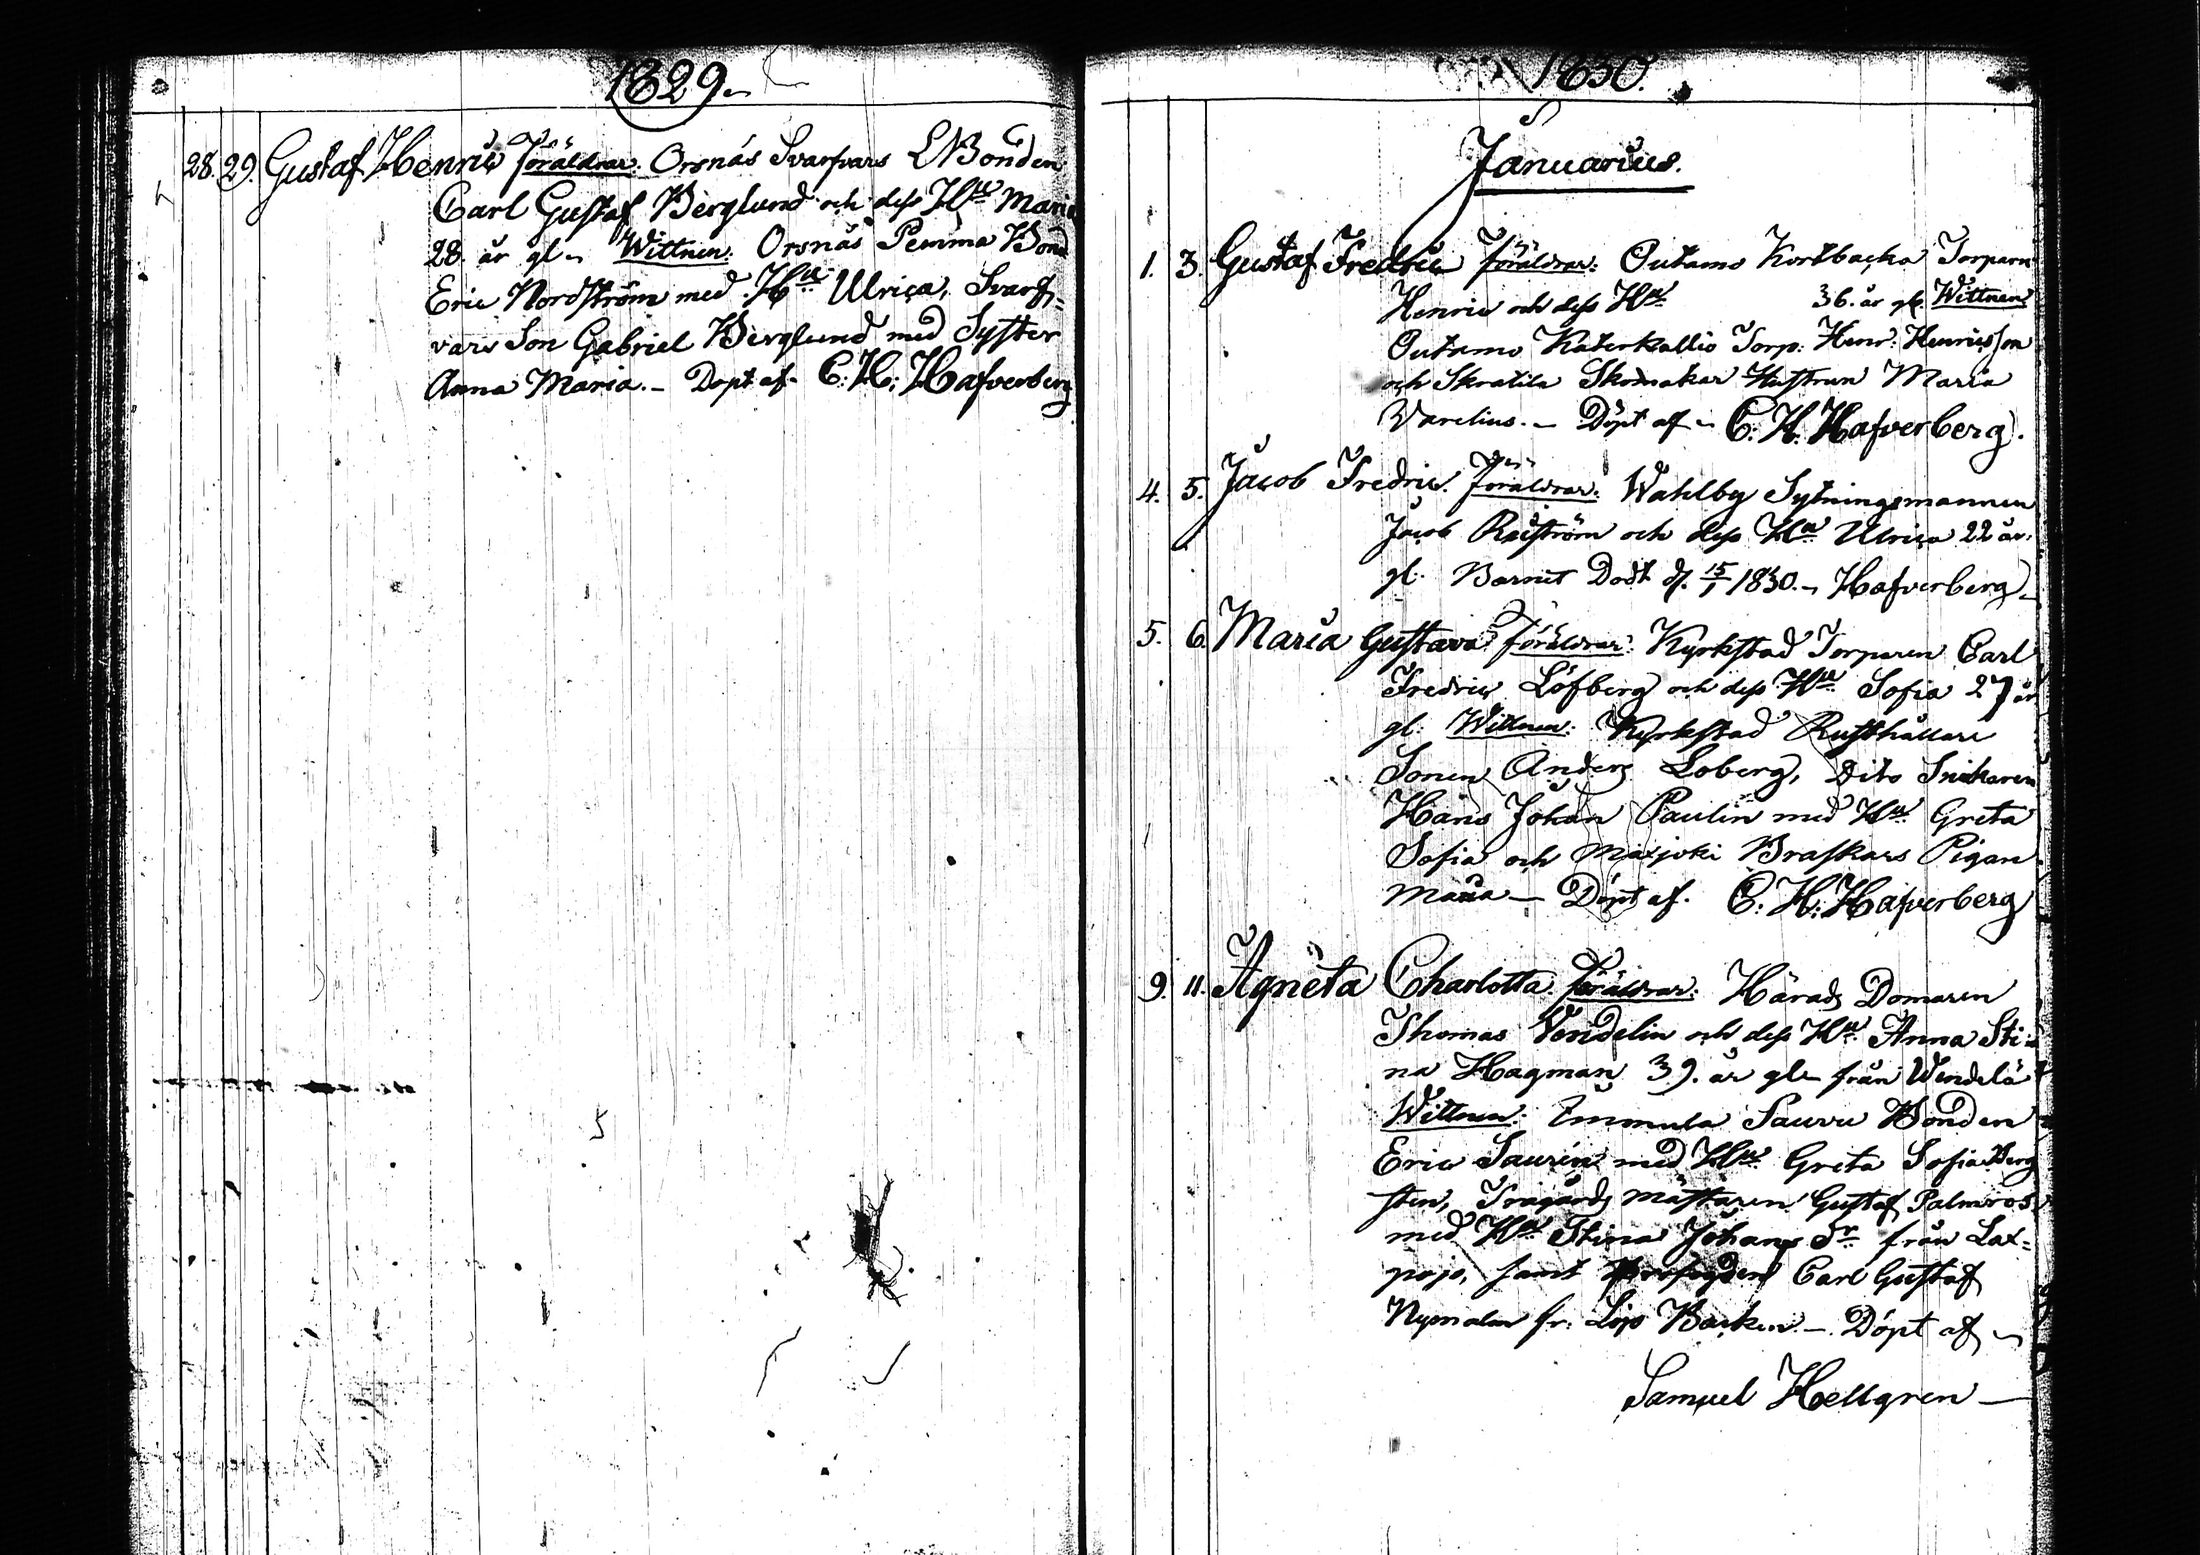 1829
28. 29. Gustaf Henric Föräldrar: Orsnäs Svarfvars Bonden
Carl Gustaf Berglund och dess Hu Maria
28. år gl. Wittnen: Orsnäs Pemma Bond
Eric Nordström med Hu Ulrica, Svarf=
vars Son Gabriel Berglund med Syster
Anna Maria. – Döpt af. C: H: Hafverberg
1830.
Januarius.
1. 3. Gustaf Fredric Föräldrar: Outamo Kortbacka Torparn
Henric och dess Hu 36. år gl. Wittnen
Outamo Katerkallio Torp: Henr: Henricsson
och Skratila Skomakar Hustrun Maria
Varelius. – Döpt af – C. H. Hafverberg.
4. 5. Jacob Fredric. Föräldrar: Wahlby Sytningsmannen
Jacob och dess Hu Ulrica 22 år.
gl. Barnet Dödt d. 15/1 1830. – Hafverberg –
5. 6. Maria Gustava Föräldrar: Kyrkstad Torparen Carl
Fredric Löfberg och dess Hu Sofia 27 år
gl: Wittnen: Kyrkstad Rusthållare
Sonen Anders Loberg, Dito Snickaren
Hans Johan Paulin med Hu Greta
Sofia och Maxjoki Braskars Pigan
Maria – Döpt af. C: H: Hafverberg
9. 11. Agneta Charlotta. Föräldrar: Härads Domaren
Thomas Vendelin och dess Hu Anna Sti=
na Hagman 39. år gl. från Wendelä
Wittnen: Immula Sauru Bonden
Eric Saurén med Hu Greta Sofia Berg
sten, Trägårds mästaren Gustaf Palmros
med Hu Stina Johans Dr. från Lax=
pojo, samt Carl Gustaf
fr. Lojo Backen. – Döpt af –
Samuel Hellgren –